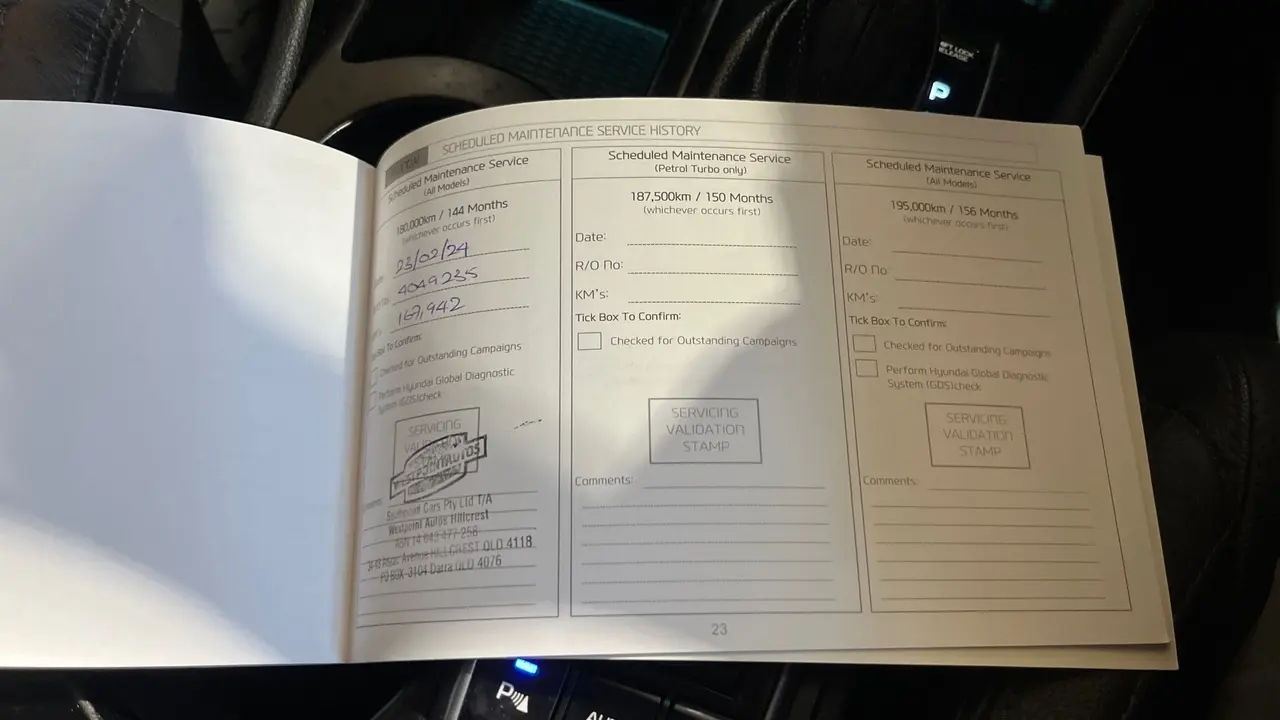 SHIFT LOCK
RELEASE
P
SCHEDULED MAINTENANCE SERVICE HISTORY
Scheduled Maintenance Service
(All Models)
180,000km / 144 Months
(whichever occurs first)
23/02/24
4049235
167,942
Box To Confirm:
Checked for Outstanding Campaigns
Perform Hyundai Global Diagnostic
System (GDS)check
SERVICING
WESTPOINTAUTOS
Southpoint Cars Pty Ltd T/A
Westpoint Autos Hillcrest
ABN 14 643 477 258
Avenue HILLCREST QLD 4118
PO BOX 3104 Darra QLD 4076
Scheduled Maintenance Service
(Petrol Turbo only)
187,500km / 150 Months
(whichever occurs first)
Date:
R/O No:
KM's:
Tick Box To Confirm:
Checked for Outstanding Campaigns
SERVICING
VALIDATION
STAMP
Comments:
Scheduled Maintenance Service
(All Models)
195,000km / 156 Months
(whichever occurs first)
Date:
R/O No:
KM's:
Tick Box To Confirm:
Checked for Outstanding Campaigns
Perform Hyundai Global Diagnostic
System (GDS)check
SERVICING
VALIDATION
STAMP
Comments:
23
P